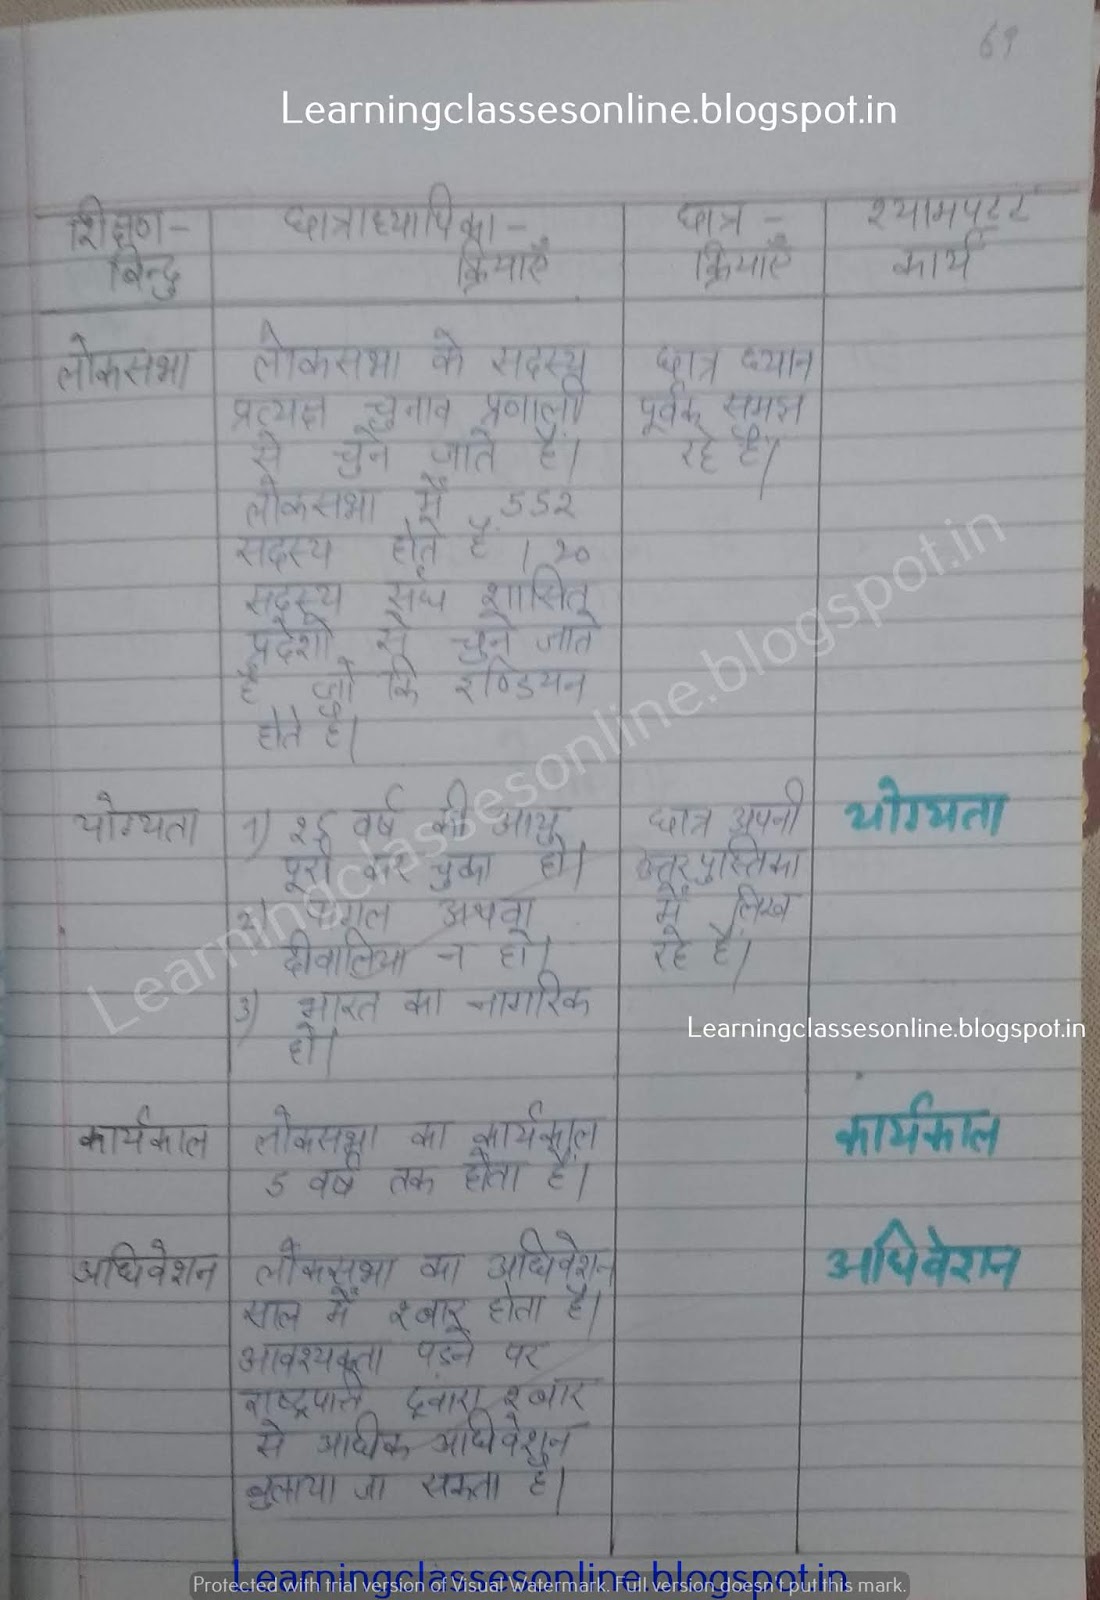 69
Learningclassesonline.blogspot.in
शिक्षण-
बिन्दु
छात्राध्यापिका-
क्रियाएँ
छात्र -
क्रियाएँ
श्यामपट्ट
कार्य
लोकसभा
लोकसभा के सदस्य
प्रत्यक्ष चुनाव प्रणाली
से चुने जाते हैं।
लोकसभा में 552
सदस्य होते हैं । २०
सदस्य संघ शासित
प्रदेशों से चुने जाते
है जो कि इण्डियन
होते है।
छात्र ध्यान
पूर्वक समझ
रहे है।
योग्यता
1) २६ वर्ष की आयु
पूरी कर चुका हो।
2) पागल अथवा
दीवालिया न हो।
3) भारत का नागरिक
हो।
छात्र अपनी
उत्तरपुस्तिका
में लिख
रहे है।
योग्यता
Learningclassesonline.blogspot.in
Learningclassesonline.blogspot.in
कार्यकाल
लोकसभा का कार्यकाल
5 वर्ष तक होता है।
कार्यकाल
अधिवेशन
लोकसभा का अधिवेशन
साल में २ बार होता है।
आवश्यकता पड़ने पर
राष्ट्रपति द्वारा २ बार
से अधिक अधिवेशन
बुलाया जा सकता है।
अधिवेशन
Learningclassesonline.blogspot.in
Protected with trial version of Visual Watermark. Full version doesn't put this mark.